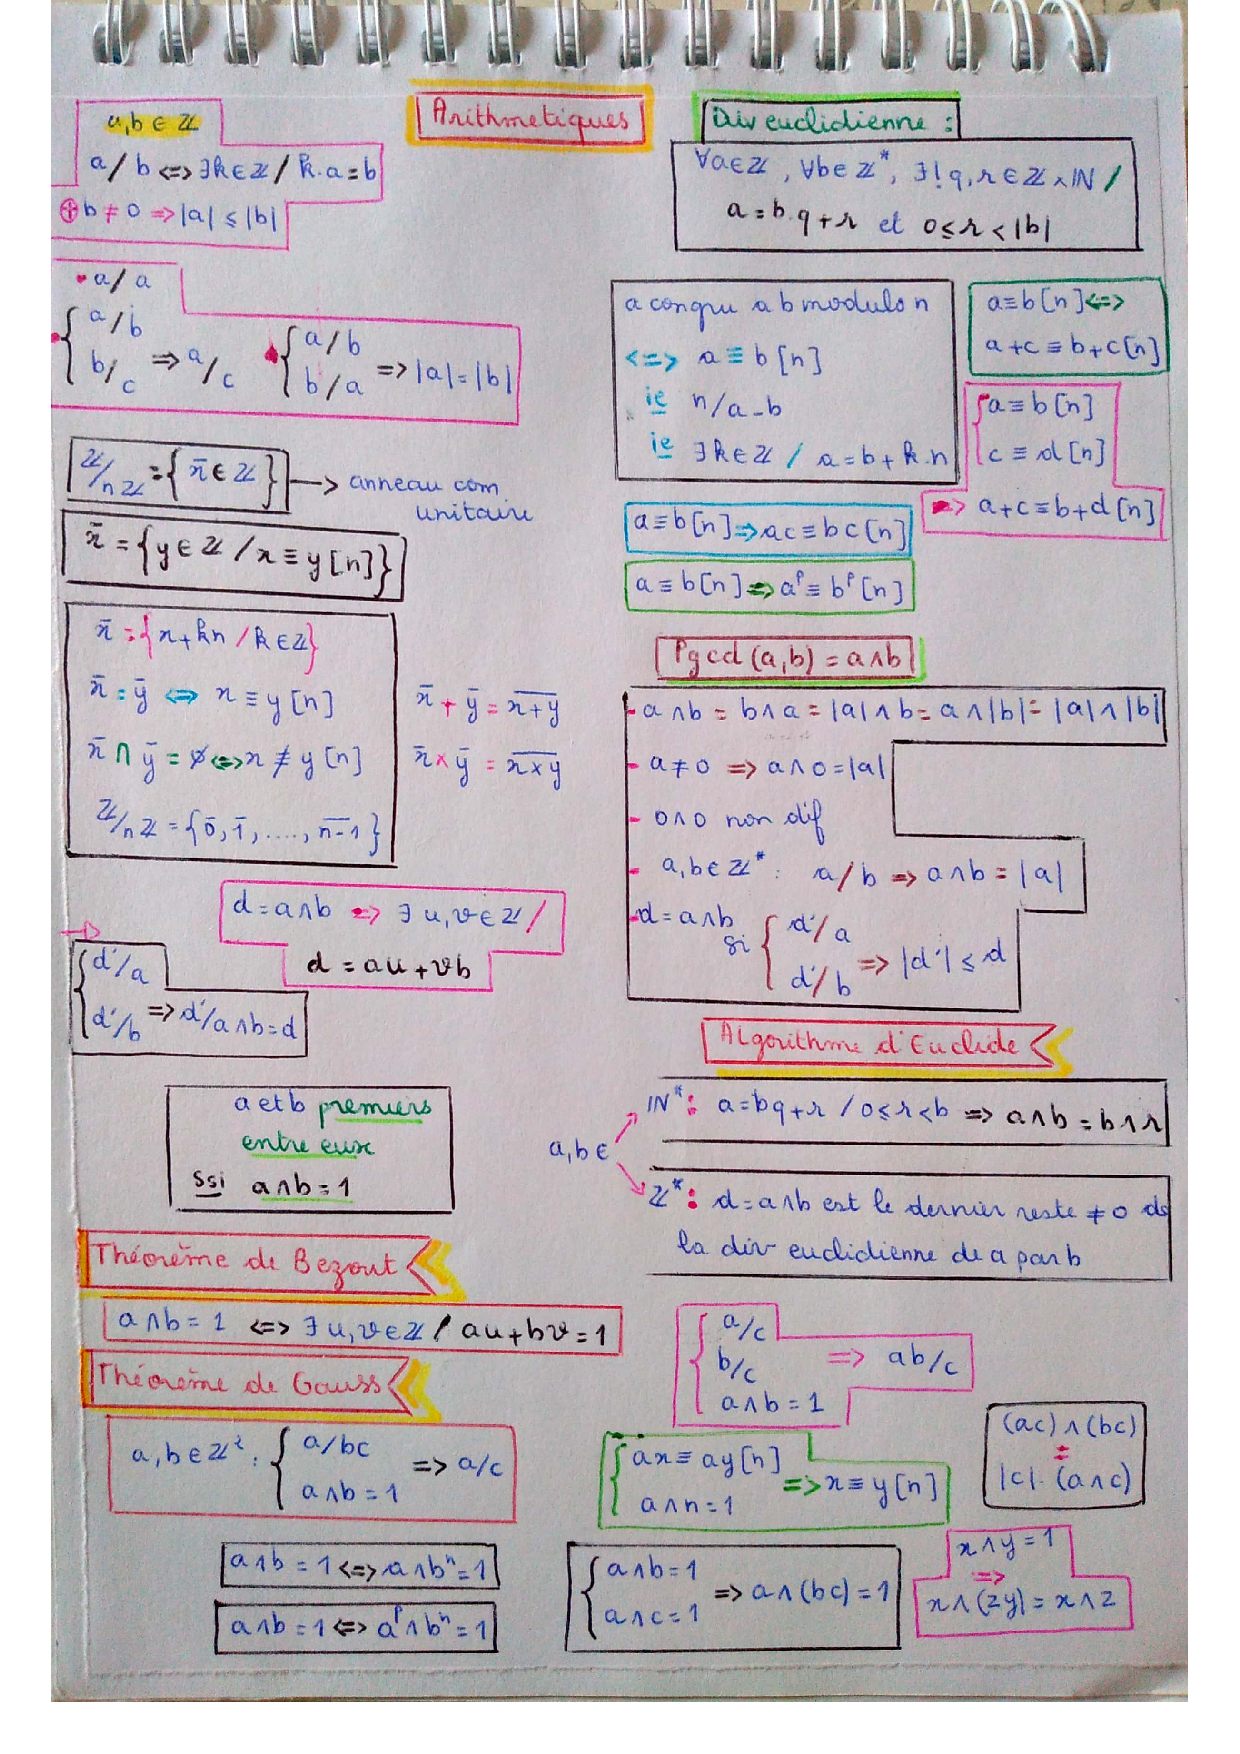 Arithmetiques
a,b ∈ ℤ
a/b <=> ∃k∈ℤ / k.a=b
⊕ b ≠ 0 => |a| ≤ |b|
• a/a
• { a/b
b/c => a/c
• { a/b
b/a => |a|=|b|
ℤ/nℤ = { x̄ ∈ ℤ } —> anneau com.
unitaire
x̄ = { y ∈ ℤ / x ≡ y [n] }
x̄ = { x + kn / k ∈ ℤ }
x̄ = ȳ <=> x ≡ y [n]
x̄ ∩ ȳ = ∅ <=> x ≢ y [n]
ℤ/nℤ = { 0̄, 1̄, ...., n-1‾ }
x̄ + ȳ = x+y‾
x̄ × ȳ = x×y‾
d = a∧b => ∃ u,v ∈ ℤ /
d = au + vb
{ d'/a
d'/b => d'/a∧b=d
a et b premiers
entre eux
ssi a∧b = 1
Théorème de Bezout
a∧b = 1 <=> ∃ u,v ∈ ℤ / au+bv = 1
Théorème de Gauss
a,b ∈ ℤ² : { a/bc
a∧b = 1 => a/c
a∧b = 1 <=> a∧bⁿ = 1
a∧b = 1 <=> aᵖ∧bⁿ = 1
Div euclidienne :
∀a∈ℤ , ∀b∈ ℤ* , ∃! q,r ∈ ℤ×ℕ /
a = b.q + r et 0 ≤ r < |b|
a congru a b modulo n
<=> a ≡ b [n]
ie n/a-b
ie ∃k∈ℤ / a = b + k.n
a≡b [n] <=>
a+c ≡ b+c [n]
{ a ≡ b [n]
c ≡ d [n]
=> a+c ≡ b+d [n]
a≡b [n] => ac ≡ bc [n]
a ≡ b [n] => aᵖ ≡ bᵖ [n]
Pgcd (a,b) = a∧b
- a∧b = b∧a = |a|∧b = a∧|b| = |a|∧|b|
- a ≠ 0 => a∧0 = |a|
- 0∧0 non dif
- a,b ∈ ℤ* : a/b => a∧b = |a|
- d = a∧b
si { d'/a
d'/b => |d'| ≤ d
Algorithme d'Euclide
a,b ∈
ℕ* : a = bq+r / 0≤r<b => a∧b = b∧r
ℤ* : d = a∧b est le dernier reste ≠ 0 de
la div euclidienne de a par b
{ a/c
b/c => ab/c
a∧b = 1
{ ax ≡ ay [n]
a∧n = 1 => x ≡ y [n]
(ac) ∧ (bc)
=
|c|. (a∧c)
{ a∧b = 1
a∧c = 1 => a∧(bc) = 1
x∧y = 1
=>
x∧(zy) = x∧z